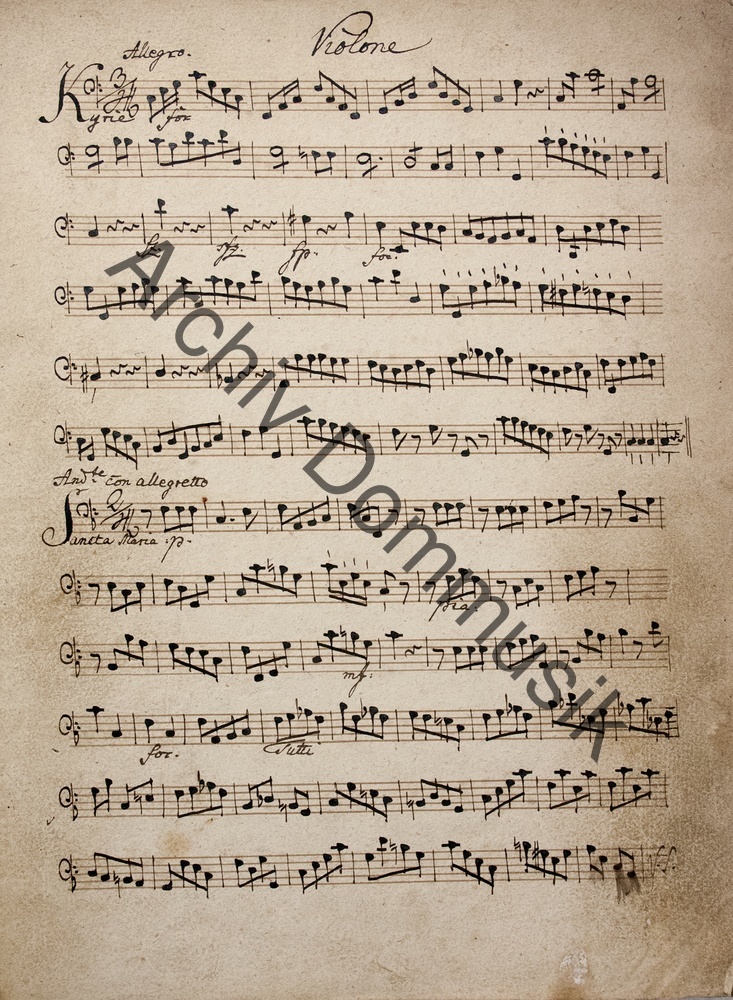 Violone
Allegro.
Kyrie for
fz sfz fp. for.
And.te con allegretto
Sancta Maria :p.
pia.
mf:
for. Tutti
V.S.
Archiv Dommusik